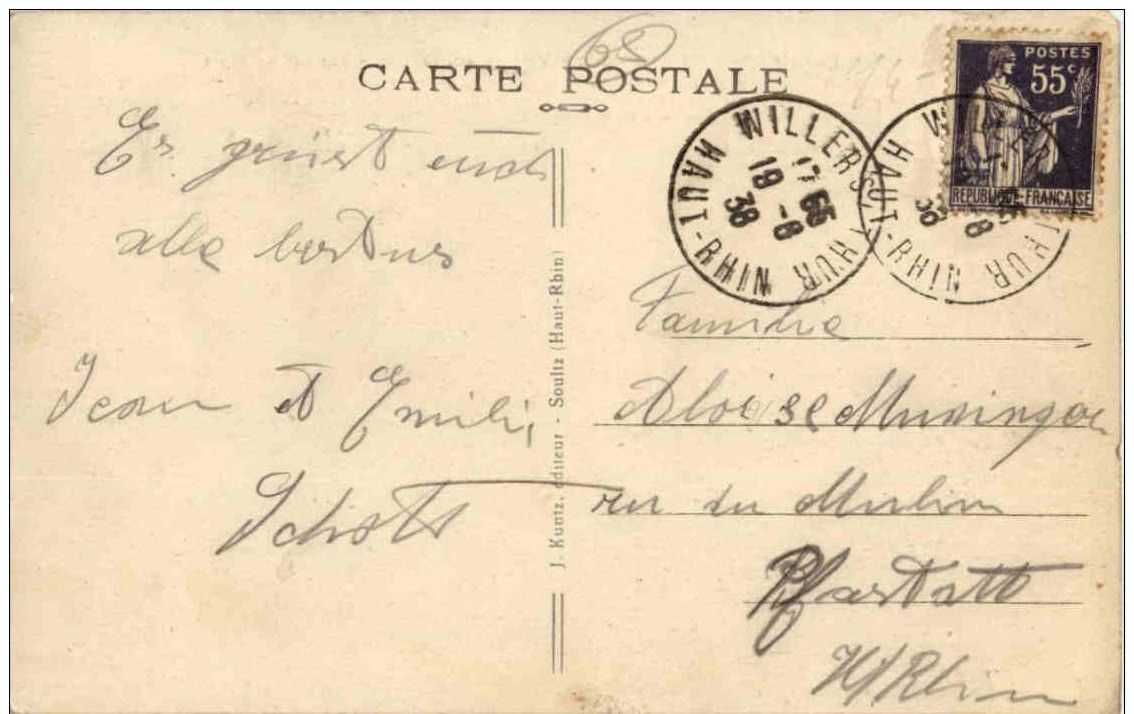 68
CARTE POSTALE
POSTES
55c
REPUBLIQUE-FRANÇAISE
WILLER S/THUR
HAUT-RHIN
17 55
19 -8
38
WILLER S/THUR
HAUT-RHIN
-8
38
Es grüst euch
alle bestens
Jean et Emilie
Schott
J. Kuntz, éditeur - Soultz (Haut-Rhin)
Familie
Aloise
rue du Moulin
Pfastatt
H/Rhin